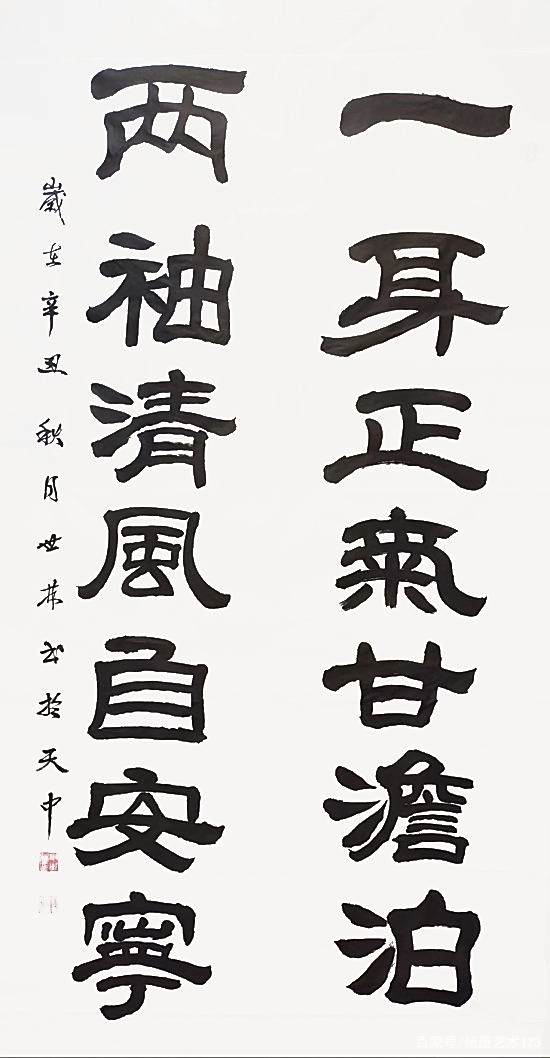 一身正氣甘澹泊
两袖清風自安寧
歲在辛丑秋月世林书於天中
百家号